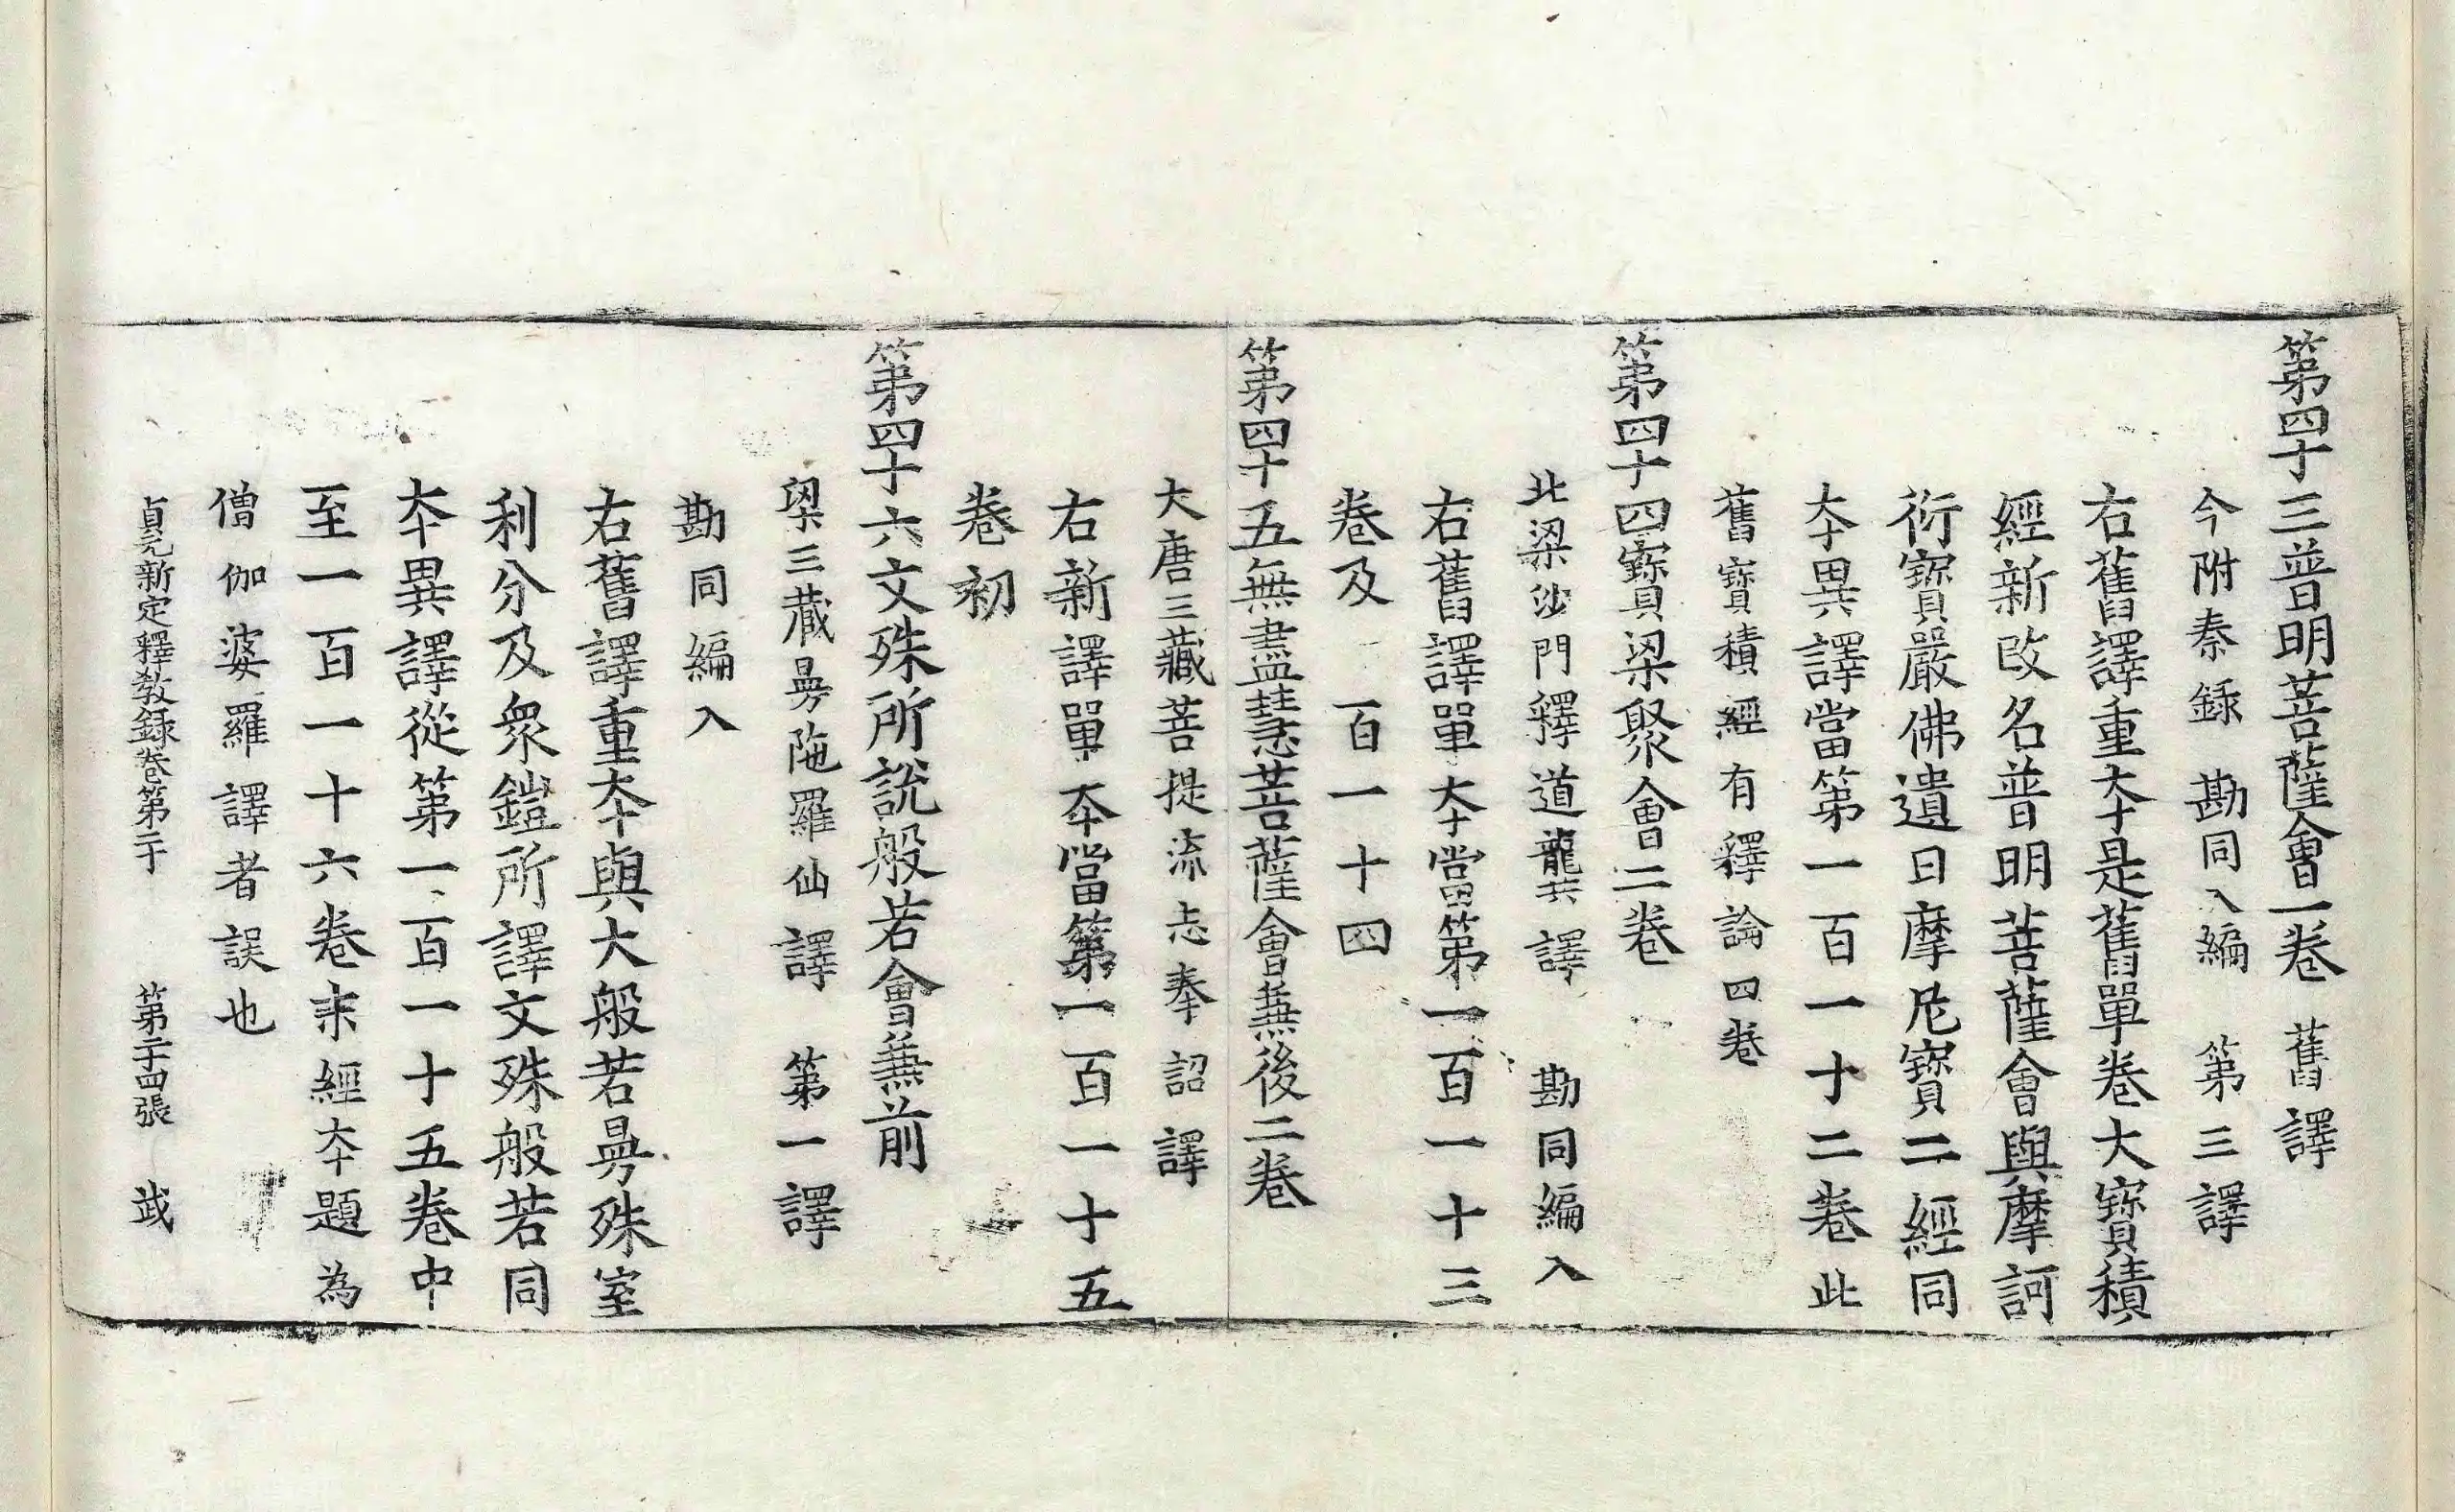 第四十三普明菩薩會一卷 舊譯
今附秦録 勘同入編 第三譯
右舊譯重夲是舊單卷大寶積
經新改名普明菩薩會與摩訶
衍寶嚴佛遺日摩尼寶二經同
夲異譯當第一百一十二卷此
舊寶積經有釋論四卷
第四十四寶梁聚會二卷
北梁沙門釋道龔譯 勘同編入
右舊譯單夲當第一百一十三
卷及一百一十四
第四十五無盡慧菩薩會蕪後二卷
大唐三藏菩提流志奉詔譯
右新譯單夲當第一百一十五
卷初
第四十六文殊所說般若會蕪前
梁三藏曼陁羅仙譯 第一譯
勘同編入
右舊譯重夲與大般若曼殊室
利分及衆鎧所譯文殊般若同
夲異譯從第一百一十五卷中
至一百一十六卷末經夲題為
僧伽婆羅譯者誤也
貞元新定釋教録卷第二十 第二十四張 武